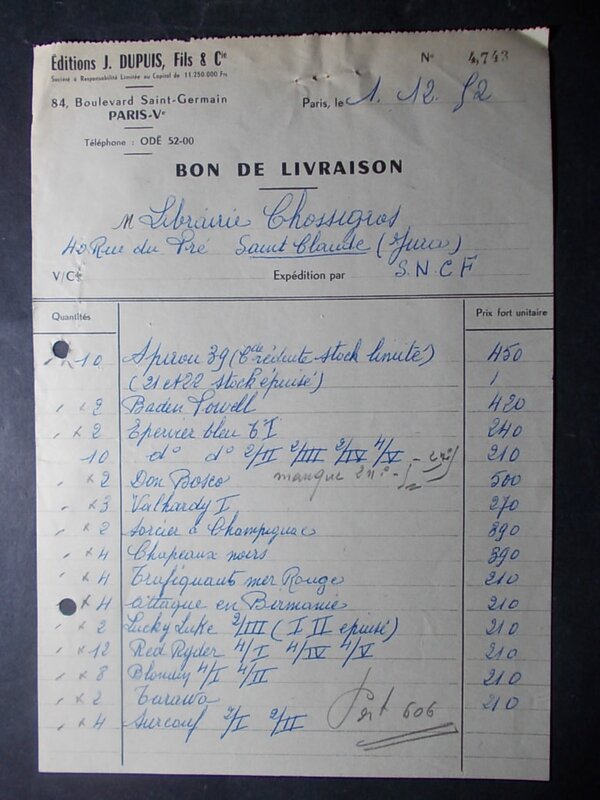 Éditions J. DUPUIS, Fils & Cie
Société à Responsabilité Limitée au Capital de 11.250.000 Frs
84, Boulevard Saint-Germain
PARIS-Ve
Téléphone : ODÉ 52-00
No 4,743
Paris, le 1. 12. 52
BON DE LIVRAISON
M Librairie Chossigros
42 Rue du Pré Saint Claude (Jura)
V/Cde Expédition par S.N.C.F
Quantités Prix fort unitaire
10 Spirou 39 (Cde réduite stock limité) 450
(21 et 22 stock épuisé)
x 2 Baden Powell 420
x 2 Epervier bleu T I 240
10 do do 2/II 2/III 2/IV 4/V 210
manque
x 2 Don Bosco 500
x 3 Valhardy I 270
x 2 Sorcier à Champignac 390
x 4 Chapeaux noirs 390
x 4 Trafiquants mer Rouge 210
x 4 Attaque en Birmanie 210
x 2 Lucky Luke 2/III (I II épuisé) 210
x 12 Red Ryder 4/I 4/IV 4/V 210
x 8 Blondin 4/I 4/II 210
x 2 Tarawa 210
x 4 Surcouf 2/I 2/II
Port 606